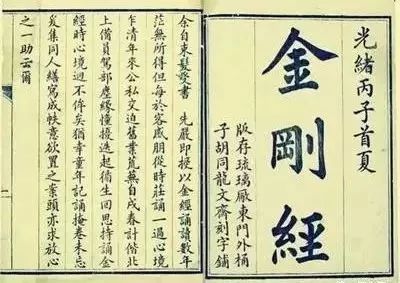 光緒丙子首夏
金剛經
版存琉璃厰東門外桶
子胡同龍文齋刻字鋪
余自束髮受書 先嚴即授以金經誦讀數年
茫無所得但每於客感朋從時莊誦一過心境
乍清年來公私交迫舊業荒蕪自戊春計偕北
上備員駕部塵緣憧擾迭起循生回思持誦金
經時心境迥不侔矣猶幸童年記誦掩卷未忘
爰集同人繕寫成帙意欲置之案頭亦求放心
之一助云爾